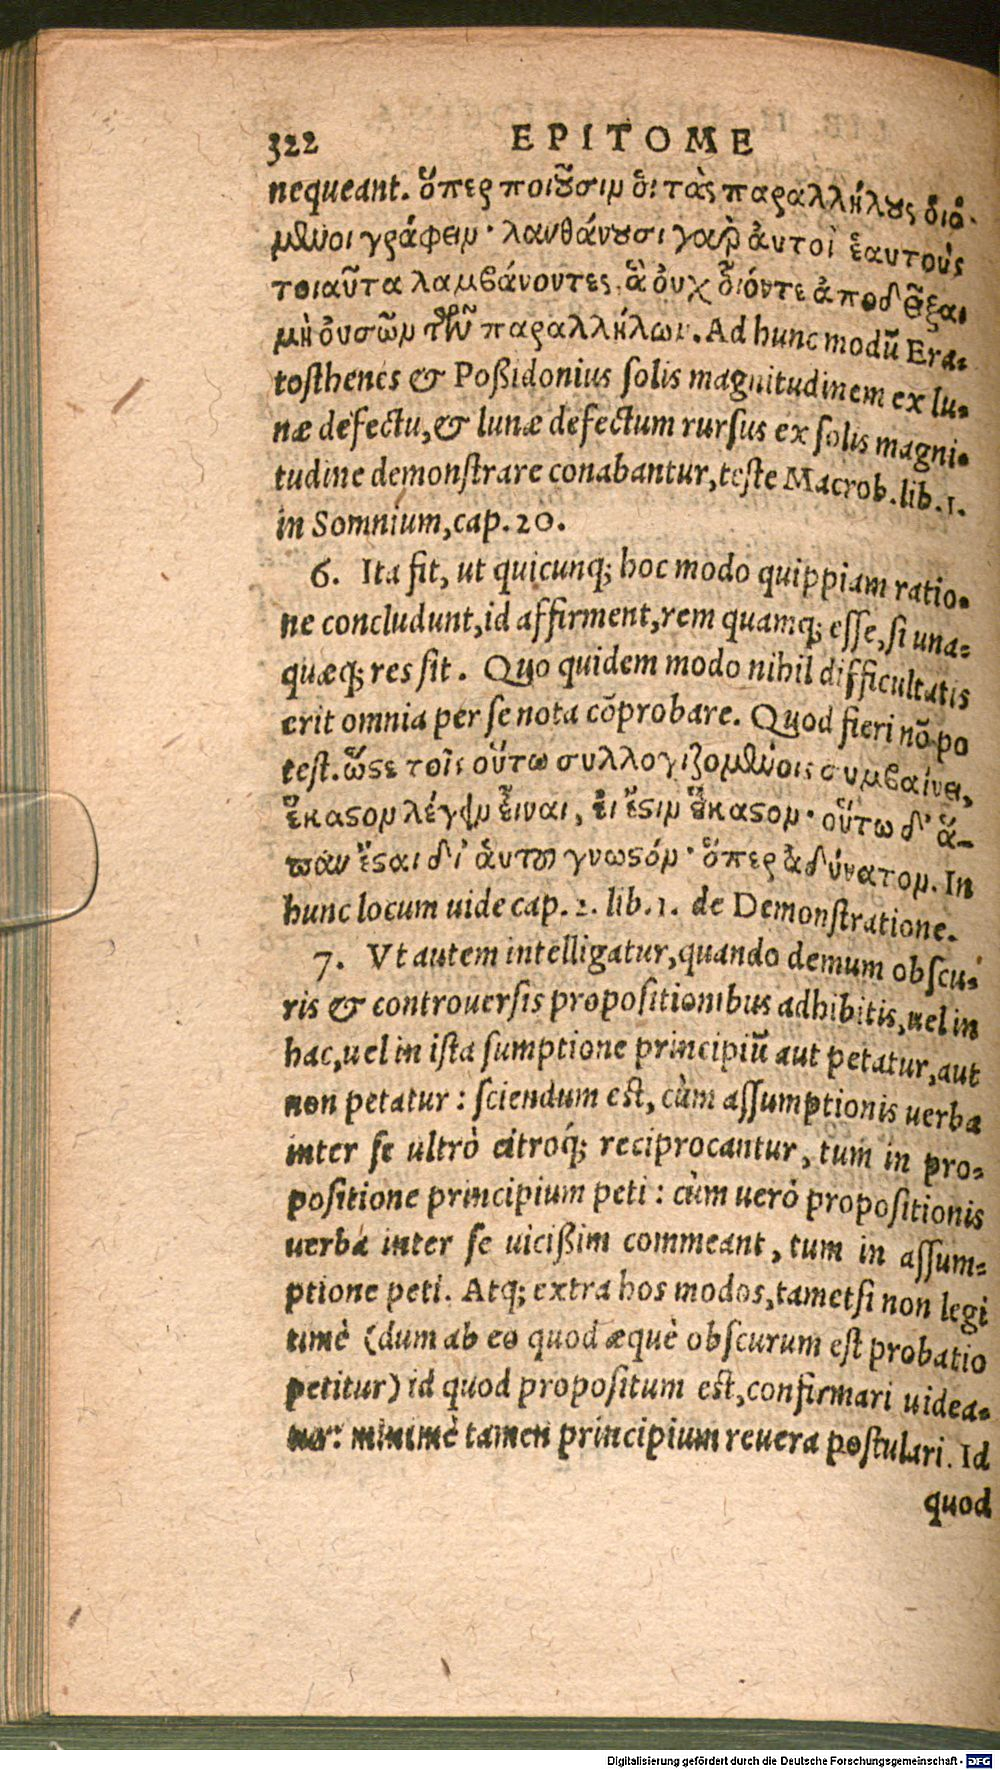 322 EPITOME
nequeant. ὅπερ ποιοῦσιν ὁι τὰς παραλλήλους διό-
μενοι γράφειν· λανθάνουσι γαρ ἀυτοὶ ἑαυτοὺς
τοιαῦτα λαμβάνοντες, ἃ ὀυχ ὁιόντε ἀποδεῖξαι
μὴ ὀυσῶν τῶν παραλλήλων. Ad hunc modū Era-
tosthenes & Poßidonius solis magnitudinem ex lu-
næ defectu, & lunæ defectum rursus ex solis magni-
tudine demonstrare conabantur, teste Macrob. lib. 1.
in Somnium, cap. 20.
6. Ita fit, ut quicunq; hoc modo quippiam ratio-
ne concludunt, id affirment, rem quamq; esse, si una-
quæq; res sit. Quo quidem modo nihil difficultatis
erit omnia per se nota cōprobare. Quod fieri nō po
test. ὥστε τοῖς οὕτω συλλογιζομένοις συμβαίνει,
ἕκαστον λέγειν εἶναι, ἐι ἔστιν ἕκαστον· οὕτω δ' ἅ-
παν ἔσται δι' ἁυτοῦ γνωστόν· ὅπερ ἀδύνατον. In
hunc locum uide cap. 2. lib. 1. de Demonstratione.
7. Vt autem intelligatur, quando demum obscu-
ris & controuersis propositionibus adhibitis, uel in
hac, uel in ista sumptione principiū aut petatur, aut
non petatur: sciendum est, cùm assumptionis uerba
inter se ultrò citroq́; reciprocantur, tum in pro-
positione principium peti: cùm uerò propositionis
uerba inter se uicißim commeant, tum in assum-
ptione peti. Atq; extra hos modos, tametsi non legi
timè (dum ab eo quod æquè obscurum est probatio
petitur) id quod propositum est, confirmari uidea-
tur: minimè tamen principium reuera postulari. Id
quod
Digitalisierung gefördert durch die Deutsche Forschungsgemeinschaft - DFG